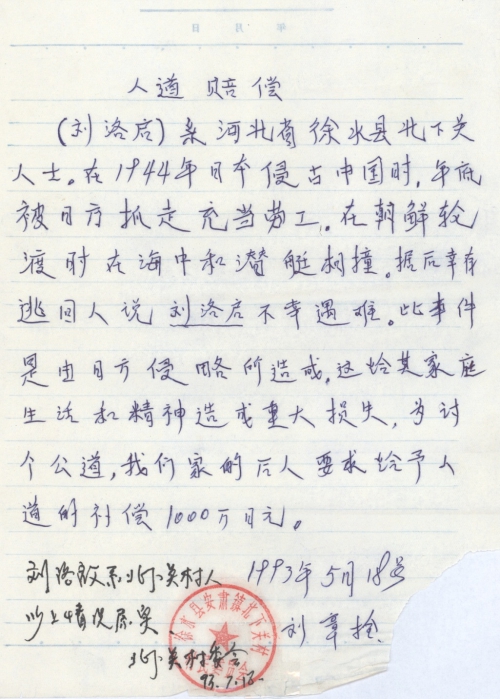 人道 赔偿
(刘洛启)系河北省徐水县北下关
人士。在1944年日本侵占中国时,年底
被日方抓走充当劳工。在朝鲜轮
渡时在海中和潜艇相撞。据后幸存
逃回人说刘洛启不幸遇难。此事件
是由日方侵略所造成,这给其家庭
生活和精神造成重大损失,为讨
个公道,我们家的后人要求给予人
道的补偿1000万日元。
1993年5月18号
刘章拴
刘洛启系北下关村人
以上情况属实
北下关村委会
93.7.16.
徐水县安肃镇北下关村